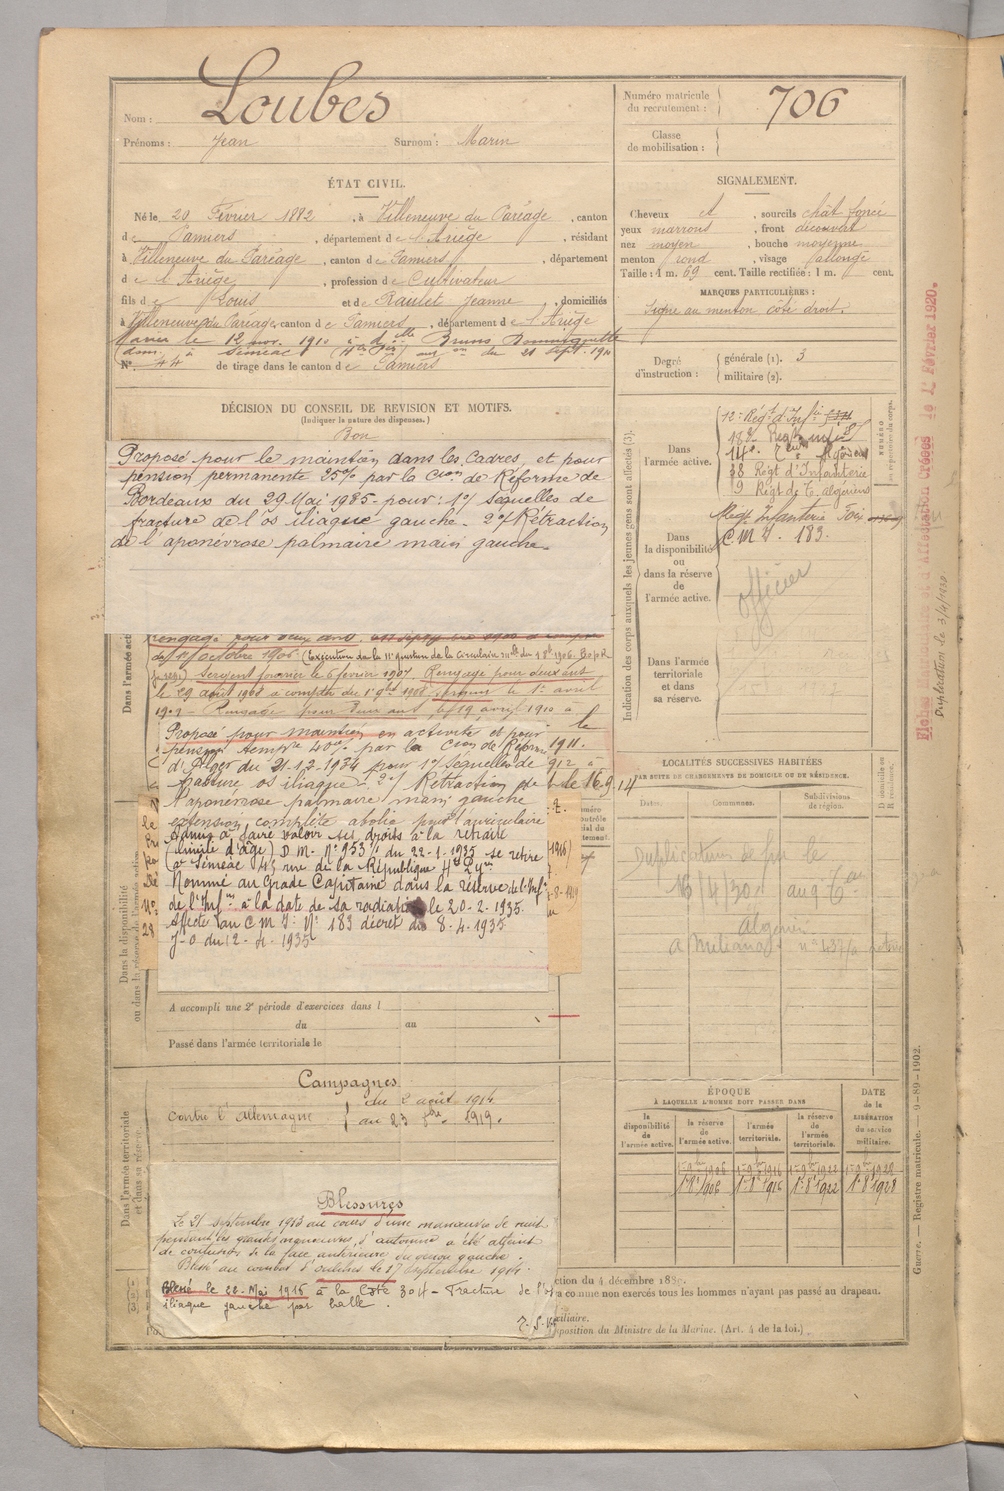 Nom : Loubes
Prénoms : Jean Surnom : Marin
Numéro matricule du recrutement : 706
Classe de mobilisation :
ÉTAT CIVIL.
Né le 20 Février 1882, à Villeneuve du Paréage, canton
de Pamiers, département de l'Ariège, résidant
à Villeneuve du Paréage, canton de Pamiers, département
de l'Ariège, profession de Cultivateur
fils de Louis et de Raulet Jeanne, domiciliés
à Villeneuve du Paréage, canton de Pamiers, département de l'Ariège
Marié le 12 nov. 1910 à dlle Bruns
dom. à Séméac (Htes Pées) du 21 sept. 1910
N° 44 de tirage dans le canton de Pamiers
SIGNALEMENT.
Cheveux et, sourcils chât foncé
yeux marrons, front découvert
nez moyen, bouche moyenne
menton rond, visage allongé
Taille : 1 m. 69 cent. Taille rectifiée : 1 m. cent.
MARQUES PARTICULIÈRES :
Signe au menton côté droit.
Degré d'instruction : générale (1). 3
militaire (2).
DÉCISION DU CONSEIL DE REVISION ET MOTIFS.
(Indiquer la nature des dispenses.)
Bon
Proposé pour le maintien dans les Cadres, et pour
pension permanente 25% par la Cion de Réforme de
Bordeaux du 29 Mai 1935 pour : 1°/ Séquelles de
fracture de l'os iliaque gauche - 2°/ Rétraction
de l'aponévrose palmaire main gauche.
Indication des corps auxquels les jeunes gens sont affectés (3).
NUMÉRO
au registre du corps.
Dans l'armée active.
12e Régt d'Infie
18e Régt
14e
38 Régt d'Infanterie
9 Régt de T. algériens
Dans la disponibilité ou dans la réserve de l'armée active.
Régt Infanterie Foix
C M I. 183.
officier
Dans l'armée territoriale et dans sa réserve.
Fiches
d'Affectation Créées le 1er Février 1920.
Duplicatum le 3/4/1930.
rengagé pour deux ans
du 1er octobre 1906 (Exécution de la 11e question de la Circulaire
Sergent fourrier le 6 février 1907. Rengagé pour deux ans
le 29 août 1908 à compter du 1er 1908. le 1er avril
1909 - Rengagé pour deux ans, le 19 avril 1910 à
Proposé pour maintien en activité et pour
pension tempre 40% par la Cion de Réforme
d'Alger du 21-12-1934 pour 1°/ Séquelles de
fracture os iliaque. 2°/ Rétraction de
l'aponévrose palmaire main gauche
extension complète abolie pour l'auriculaire
Admis à faire valoir ses droits à la retraite
(limite d'âge) D. M. N° 953 ¼ du 22-1-1935 se retire
à Séméac 43 rue de la République Htes Pyrs
Nommé au Grade Capitaine dans la réserve de l'Infie
de l'Infie à la date de sa radiation le 20-2-1935.
Affecté au C M I. N° 183 décret du 8-4-1935
J-O du 12-4-1935
le
1911.
912 à
le 16.9.14
LOCALITÉS SUCCESSIVES HABITÉES
PAR SUITE DE CHANGEMENTS DE DOMICILE OU DE RÉSIDENCE.
Dates. Communes. Subdivisions de région. D domicile ou R résidence.
Duplicatum de le
16/4/30 au 9e Tir
Algérien
à Miliana n° 437/2 active
Dans l'armée act
Dans la disponibilité
ou dans la réserve de l'armée active
A accompli une 2e période d'exercices dans l
du au
Passé dans l'armée territoriale le
Dans l'armée territoriale
et dans sa réserve
Campagnes
contre l'Allemagne { du 2 août 1914
au 23 8bre 1919.
ÉPOQUE
À LAQUELLE L'HOMME DOIT PASSER DANS
la disponibilité de l'armée active.
la réserve de l'armée active.
l'armée territoriale.
la réserve de l'armée territoriale.
DATE de la LIBÉRATION du service militaire.
1er 9bre 1906 1er 9bre 1916 1er 9bre 1922 1er 9bre 1928
1er 8e 1906 1er 8e 1916 1er 8e 1922 1er 8e 1928
Blessures
Le 21 septembre 1913 au cours d'une manœuvre de nuit
pendant les grandes manœuvres d'automne a été atteint
de contusion de la face antérieure du genou gauche.
Blessé au combat d'Ourches le 17 septembre 1914.
Blessé le 22 Mai 1916 à la Côte 304 - Fracture de l'os
iliaque gauche par balle.
ction du 4 décembre 188
comme non exercés tous les hommes n'ayant pas passé au drapeau.
xiliaire.
sposition du Ministre de la Marine. (Art. 4 de la loi.)
Guerre. — Registre matricule. — 9-89-1902.